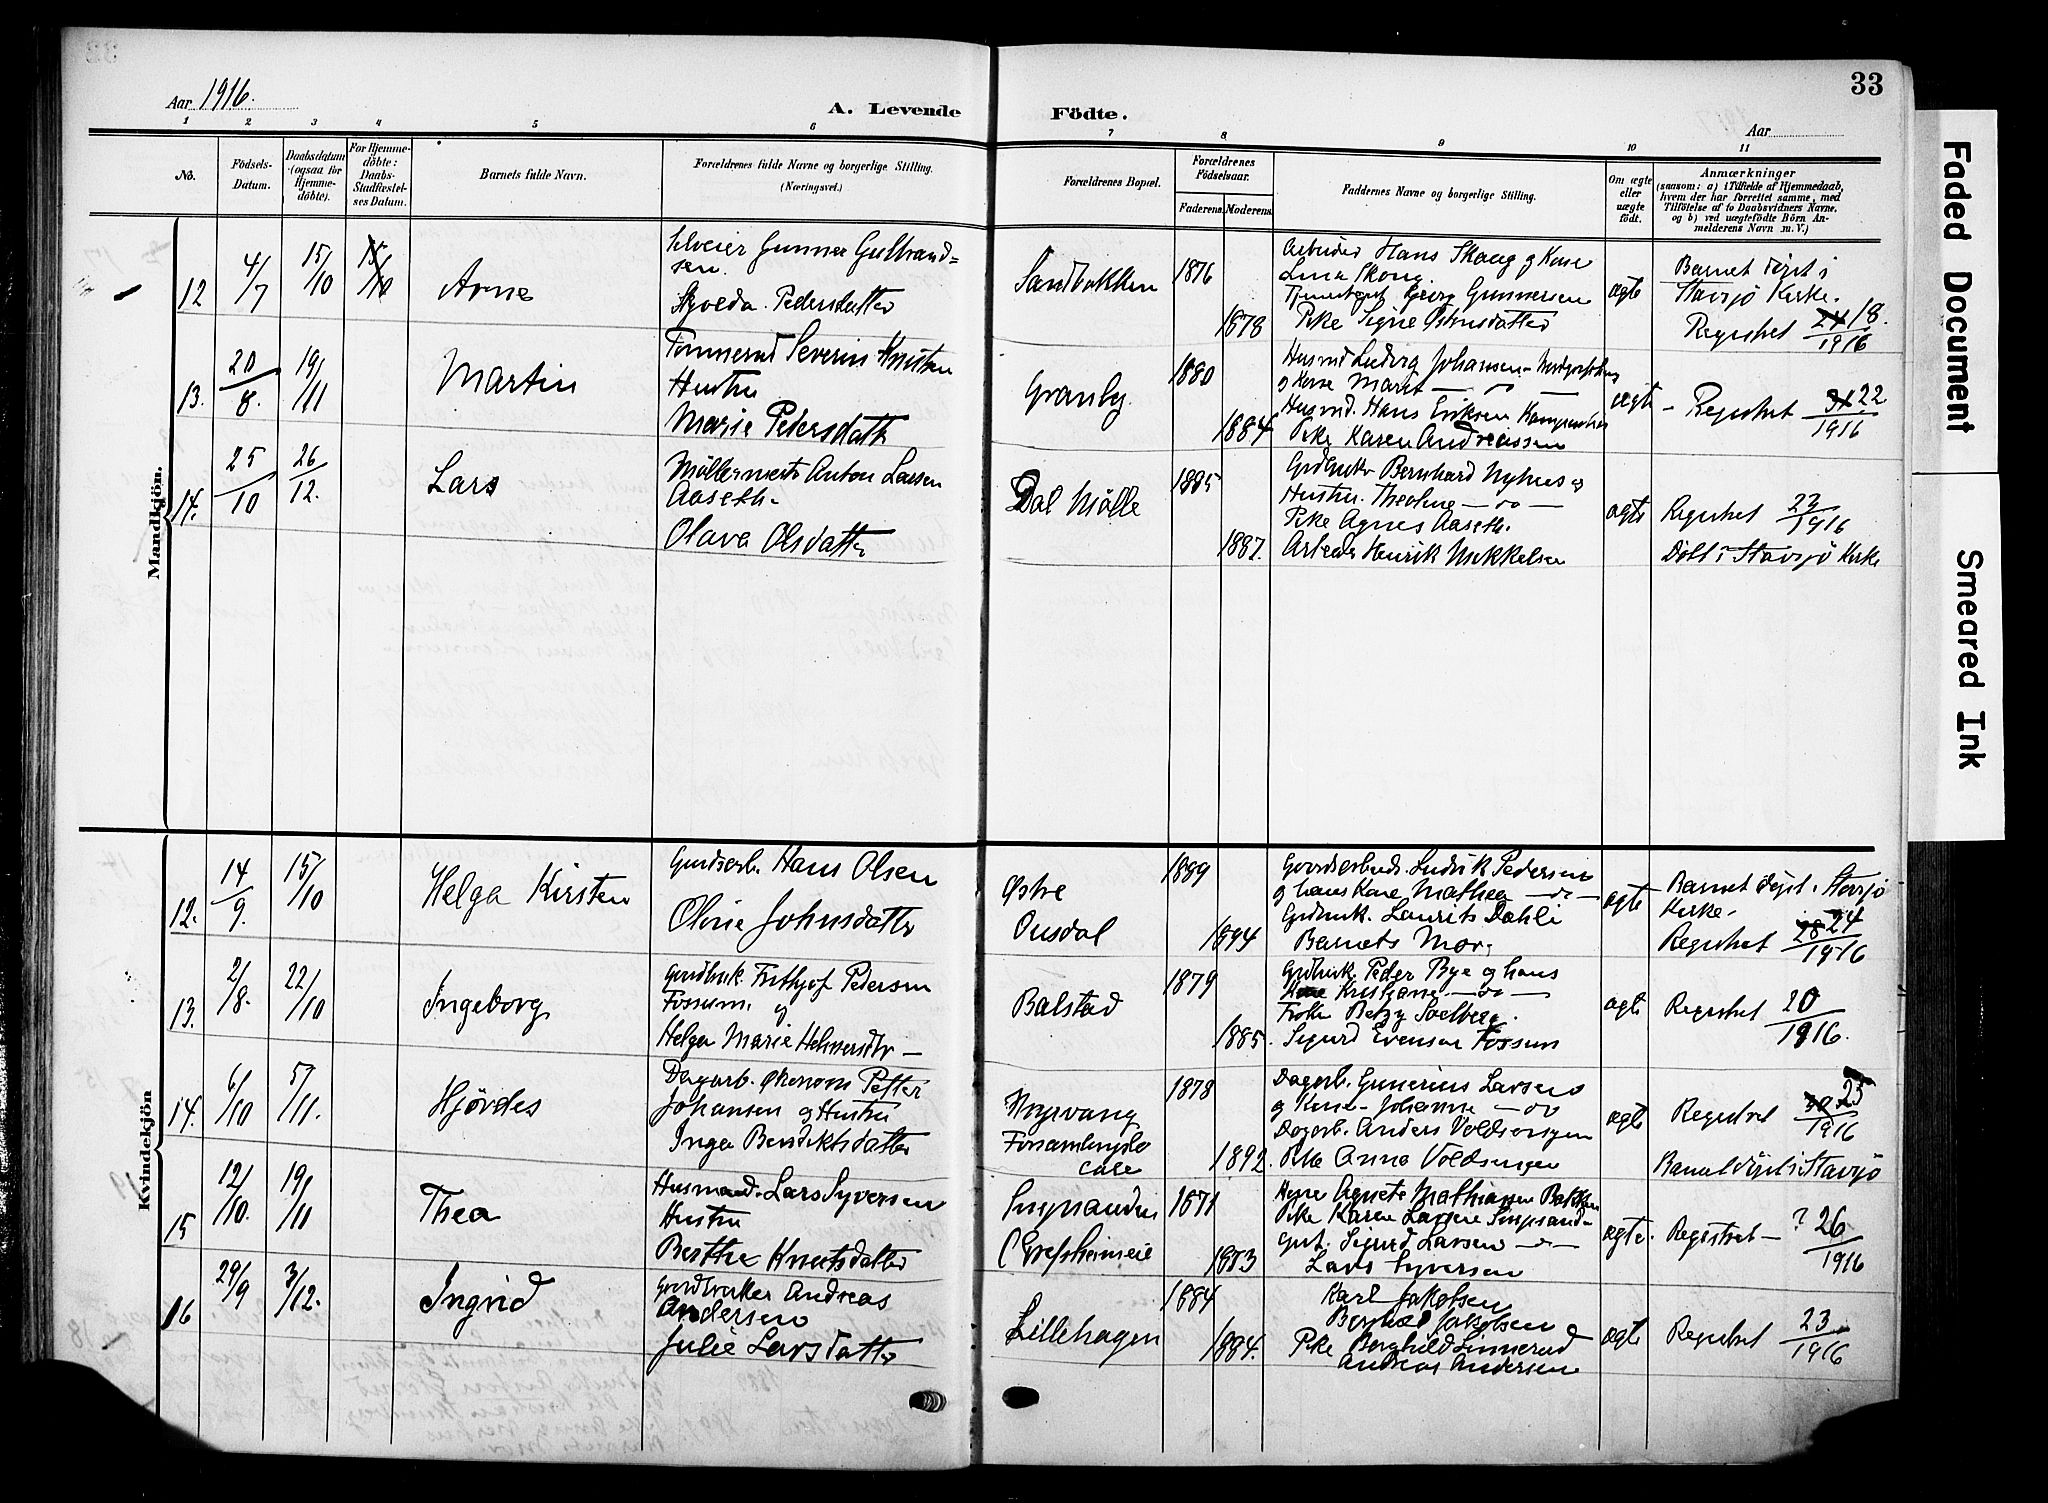 33
Aar 1916.
A. Levende Födte.
Aar
1 2 3 4 5 6 7 8 9 10 11
No.
Födsels-
Datum.
Daabsdatum
(ogsaa for
Hjemme-
döbte).
For Hjemme-
döbte:
Daabs-
Stadfæstel-
ses Datum.
Barnets fulde Navn.
Forældrenes fulde Navne og borgerlige Stilling.
(Næringsvei.)
Forældrenes Bopæl.
Forældrenes
Födselsaar.
Faderens. Moderens.
Faddernes Navne og borgerlige Stilling.
Om ægte
eller
uægte
födt.
Anmærkninger
(saasom: a) i Tilfælde af Hjemmedaab,
hvem der har forrettet samme, med
Tilföielse af to Daabsvidners Navne,
og b) ved uægtefödte Börn An-
melderens Navn m. V.)
Mandkjön.
12 4/7 15/10 15/10 Arne
Gunner Gulbrand=
sen.
Pedersdatter
Sandbakken
1876
1878
Arbeider Hans Skaug og Kone
Lina Skaug
Georg Gunnersen
Pike Signe
ægte
Barnet döpt i
Stavsjö Kirke.
Registret 24 18.
1916
13. 20/8. 19/11 Martin
Tömmermd Severin Knutsen
Hustru
Marie Pedersdatt
Granby
1880
1884
Husmd Ludvig Johansen
og Kone Marit — " —
Husmd. Hans Eriksen
Pike Karen Andreassen
ægte
Registret 31 22
1916
14. 25/10 26/12. Lars
Möllermester Anton Larsen
Aaseth.
Olava Olsdatter
Dal Mölle
1885
1887.
Grdbruker Bernhard Nyhus og
Hustru Theoline — " —
Pike Agnes Aaseth.
Arbeider Henrik Mikkelsen
ægte
Registret 23
1916
Döbt i Stavsjö Kirke
Kvindekjön
12. 14/9. 15/10 Helga Kirsten
Gaardsarb. Hans Olsen
Oline Johnsdatter
Østre
Ousdal
1889
1894
Gaardsarbeid. Ludvik Pedersen
og hans Kone Mathea — " —
Grdbruk. Laurits Dahli
Barnets Mor.
ægte
Barnet döpt i Stavsjö
Kirke.
Registret 28 24
1916
13. 2/8. 22/10 Ingeborg
Gaardbruk. Frithjof Pedersen
Fossum og
Helga Marie Helmersdtr —
Balstad
1879
1885.
Grdbruk. Peder Bye og hans
Kone Kristiane — " —
Frøken Betzy Soelberg.
Sigurd Evensen Fossum
ægte
Registret 20
1916.
14. 6/10 5/11. Hjördes
Dagarb. Økonom Petter
Johansen og Hustru
Inga Bendiktsdatter
Forsamlingslo
cale
1878
1892.
Dagarb. Gunerius Larsen
og Kone Johanne — " —
Dagarb. Anders Voldsengen
Pike Anna Voldsengen
ægte
Registret 30 25
1916
Barnet döpt i Stavsjö
15 12/10. 19/11 Thea
Husmand. Lars Syversen
Hustru
Berthe Knutsdatter
1871
1873
Agnete Mathiassen Bakken
Pike Karen Larsen
Gut. Sigurd Larsen — " —
Lars Syversen
ægte.
Registret — ? 26
1916
16 29/9 3/12. Ingrid
Gaardbruker Andreas
Andersen
Julie Larsdatter
Lillehagen
1884
1884.
Karl Jakobsen
Jakobsen
Pike Borghild Linnerud
Andreas Andersen
ægte
Registret 23
1916
Faded Document
Smeared Ink